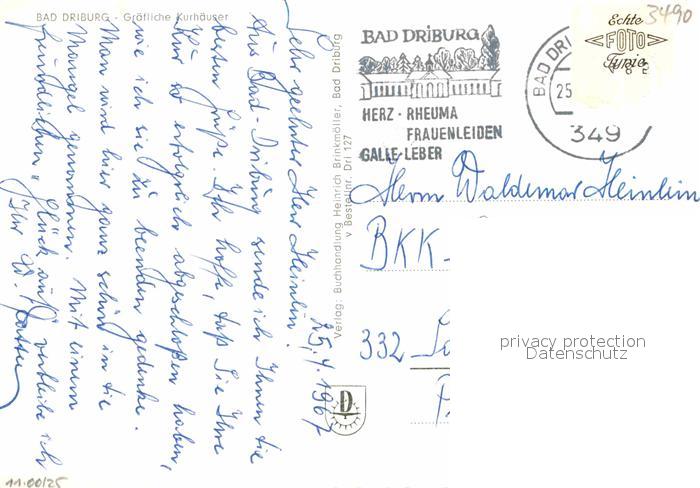 BAD DRIBURG - Gräfliche Kurhäuser
25.4.1967
Sehr geehrter Herr Heinlin!
Aus Bad-Driburg sende ich Ihnen die
besten Grüße. Ich hoffe, daß Sie Ihre
Kur so erfolgreich abgeschloßen haben,
wie ich sie zu beenden gedenke.
Man wird hier ganz schön in die
Mangel genommen. Mit einem
freundlichen „Glück auf" verbleibe ich
Ihr
Verlag: Buchhandlung Heinrich Brinkmöller, Bad Driburg
v Bestellnr. Dri 127
BAD DRIBURG
HERZ · RHEUMA
FRAUENLEIDEN
GALLE-LEBER
BAD DRI
25
349
Echte
FOTO
Typie
3490
Herrn Waldemar Heinlin
BKK-
332
D
privacy protection
Datenschutz
11.00/25